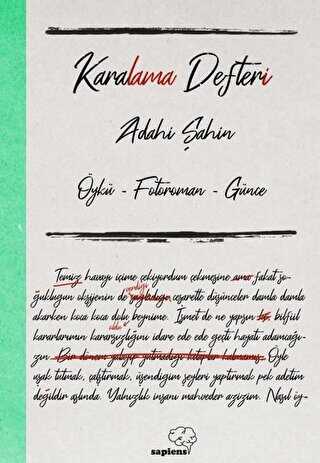 Karalama Defteri
Adahi Şahin
Öykü - Fotoroman - Günce
Temiz havayı içime çekiyordum çekmesine ama fakat so-
verdiği
ğukluğun oksijenin de sağladığı cesaretle düşünceler damla damla
akarken koca koca dolu beynime. İsmet de ne yapsın bilfiil
oldu
kararlarımın kararsızlığını idare ede ede geçti hayatı adamcağı-
zın. Bir dönem yatmadığı kitaplar kalmamış. Öyle
uşak tutmak, çalıştırmak, üşendiğim şeyleri yaptırmak pek adetim
değildir aslında. Yalnızlık insanı mahveder azizim. Nasıl iy-
sapiens